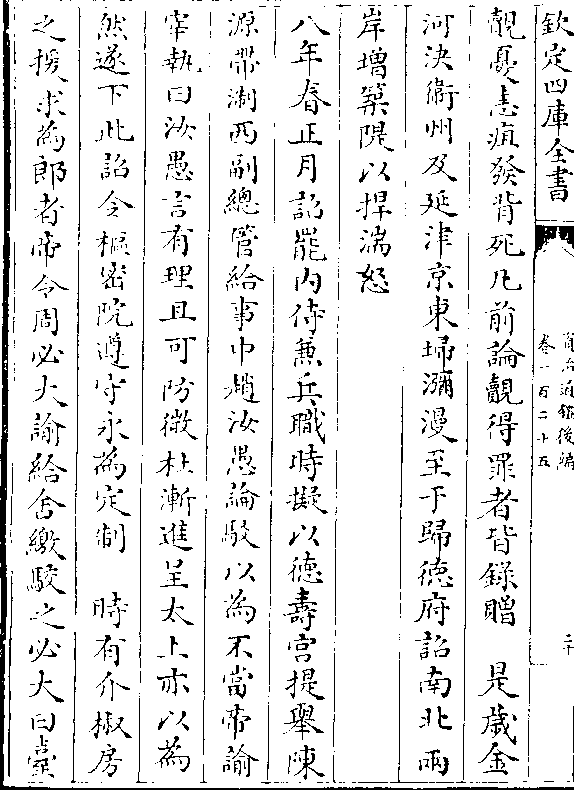 欽定四庫全書
資治通鑑後編
卷一百二十五
二十
覿憂恚疽發背死凡前論覿得罪者皆錄贈　是歲金
河決衛州及延津京東埽瀰漫至于歸德府詔南北兩
岸增築隄以捍湍怒
八年春正月詔罷內侍兼兵職時擬以德壽宮提舉陳
源帶浙西副總管給事中趙汝愚論駮以為不當帝諭
宰執曰汝愚言有理且可防微杜漸進呈太上亦以為
然遂下此詔令樞密院遵守永為定制　時有介椒房
之援求為郎者帝令周必大諭給舍繳駮之必大曰臺